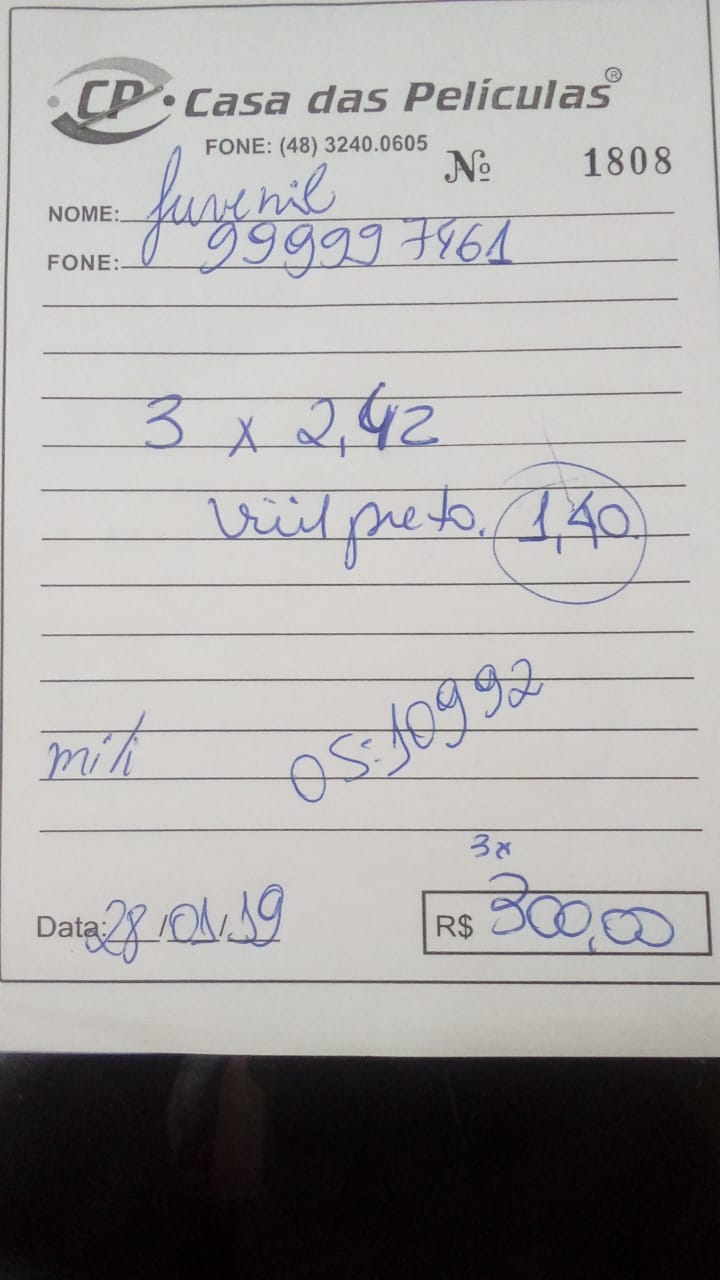 CP • Casa das Películas ®
FONE: (48) 3240.0605
Nº 1808
NOME: Juvenil
FONE: 99999 7461
3 x 2,42
preto. 1,40
OS: 10992
mili
3x
Data: 28/01/19 R$ 300,00